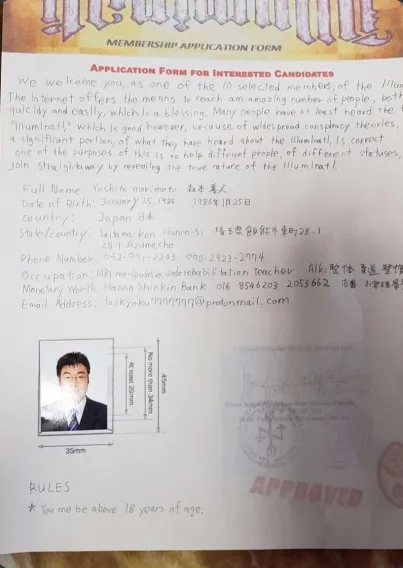 MEMBERSHIP APPLICATION FORM
APPLICATION FORM FOR INTERESTED CANDIDATES
We welcome you, as one of the 10 selected members, of the Illum
The Internet offers the means to reach am amazing number of people, both
quicldy and easlly, which is a blessing. Many people have at least heard the t
"Illuminatl," which is good however, because of widespread conspiracy theories,
a significant portion, of what they have heard about the Illuminatl, is correct
one of the purposes of this is to help different people, of different statuses,
join straightaway by revealing the true nature of the Illuminatl.
Full Name: Yoshito morimoto 森本 善人
Date of Birth: January 25, 1986 1986年1月25日
country: Japan 日本
State/country: Saitama-ken Hanno-si 埼玉県飯能市東町28-1
28-1 Azumacho
Phone Number: 042-971-2243 090-2423-2774
Occupation: Aiki manipulative Judo rehabilitation Teacher Aiki 整体 柔道 整
Monetary Worth Hanno Shinkin Bank 016 8546203 2053662
Email Address: taikyoku7777777@protonmail.com
At least 25mm
No more than 34mm
45mm
35mm
APPROVED
RULES
* You me be above 18 years of age.